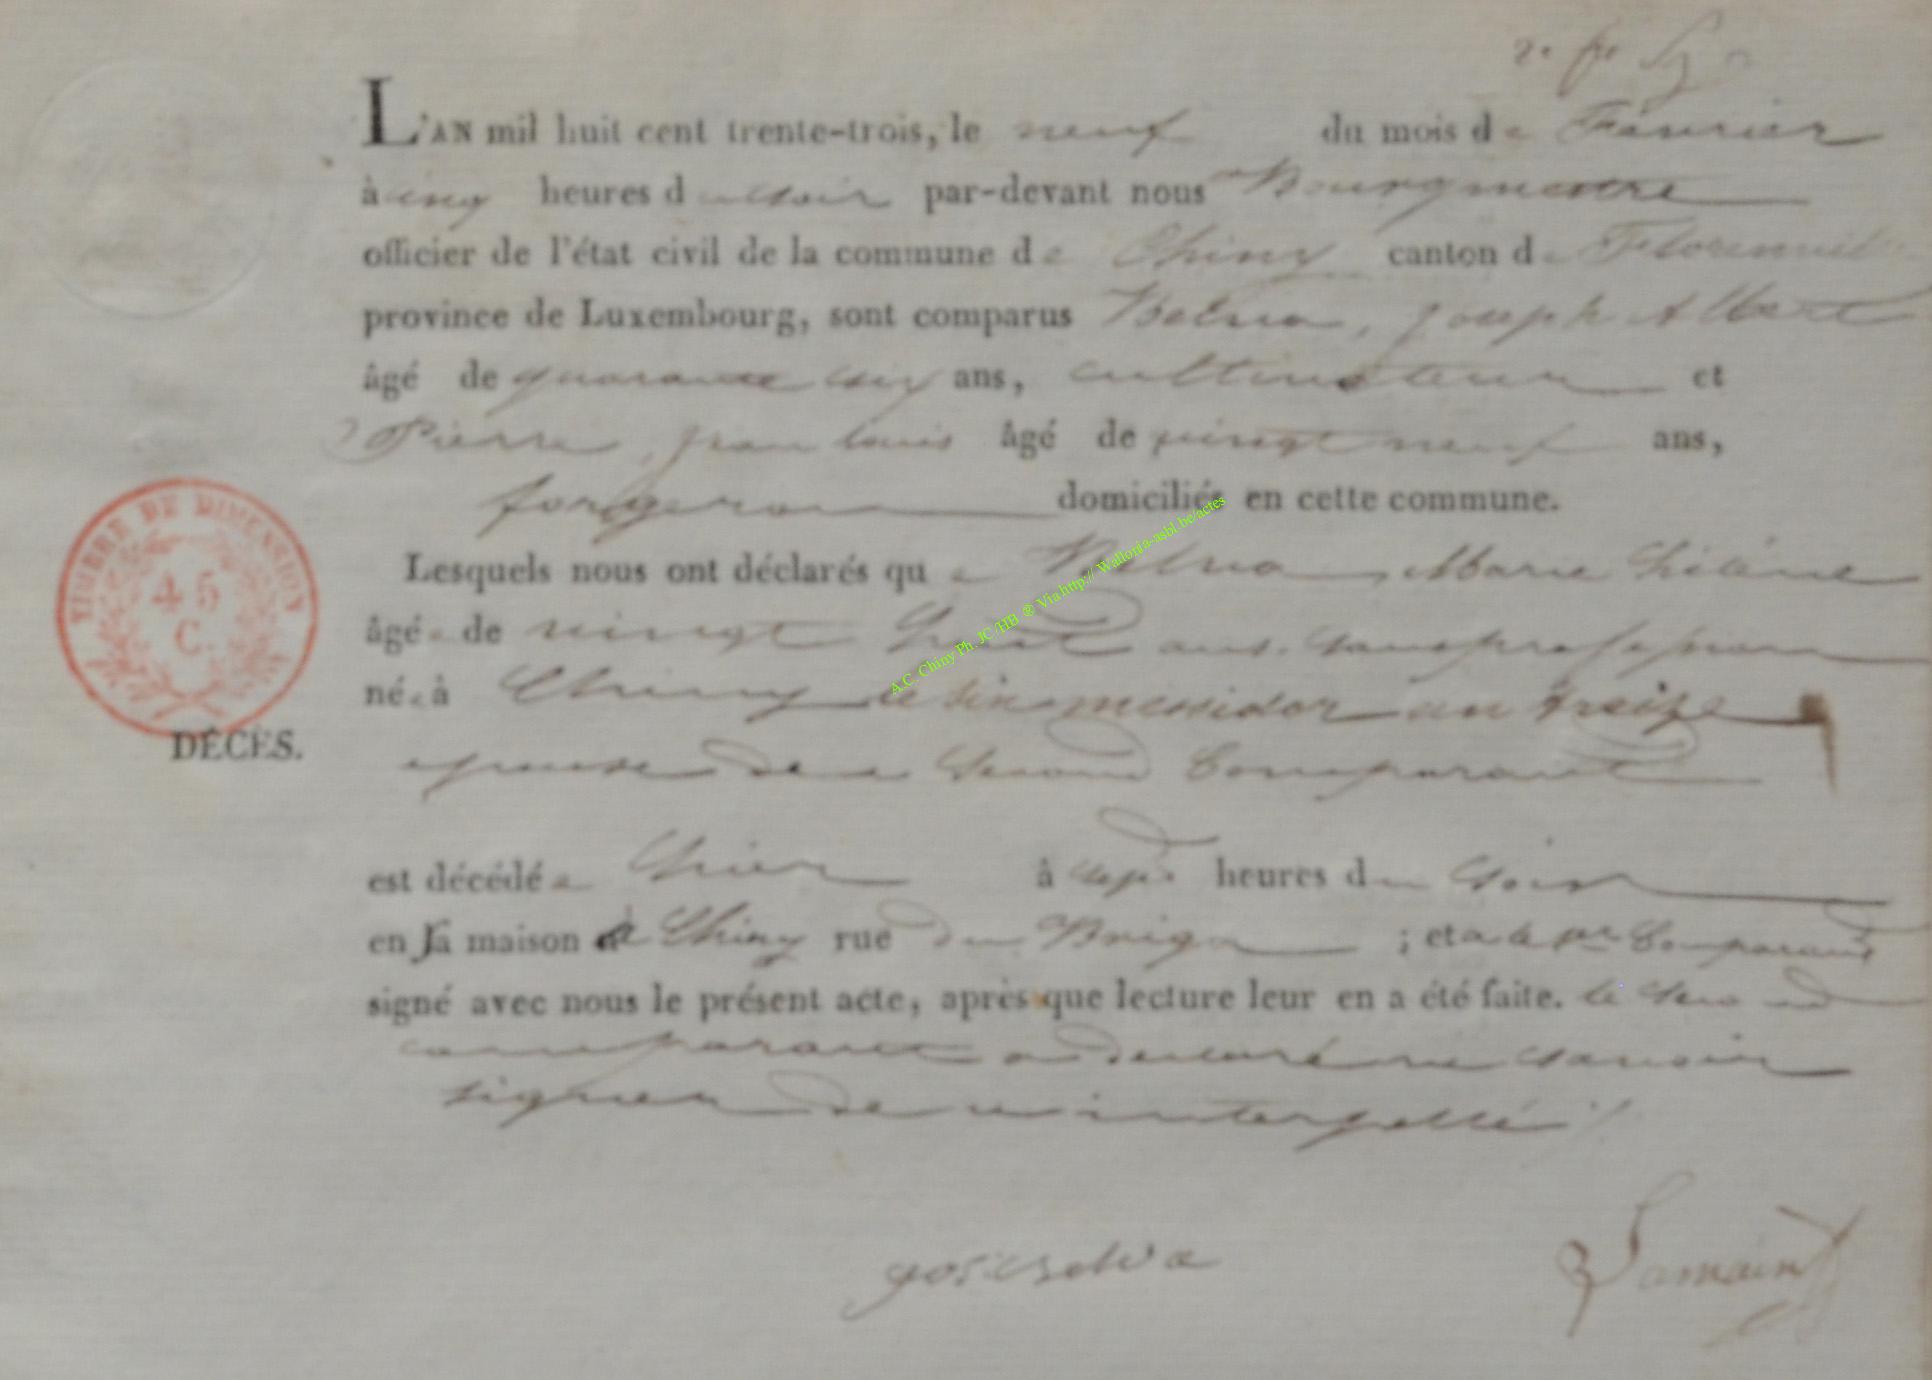 L'AN mil huit cent trente-trois, le neuf du mois de Février
à cinq heures du soir par-devant nous Bourgmestre
officier de l'état civil de la commune de Chiny canton de Florenville
province de Luxembourg, sont comparus Joseph Albert
âgé de quarante six ans, cultivateur et
Pierre, Jean Louis âgé de vingt neuf ans,
forgeron domiciliés en cette commune.
Lesquels nous ont déclarés que Marie
âgée de vingt huit ans. sans profession
née à Chiny le six messidor an treize
epouse de second Comparant
est décédée hier à sept heures du soir
en sa maison à Chiny rue du ; et a le pr Comparant
signé avec nous le présent acte, après que lecture leur en a été faite. le second
comparant a declaré ne savoir
signer de ce interpellé
Lamain
TIMBRE DE DIMENSION
45
C.
DÉCÈS.
A.C. Chiny Ph. JC /HB ® Via http:// Wallonia-asbl.be/actes